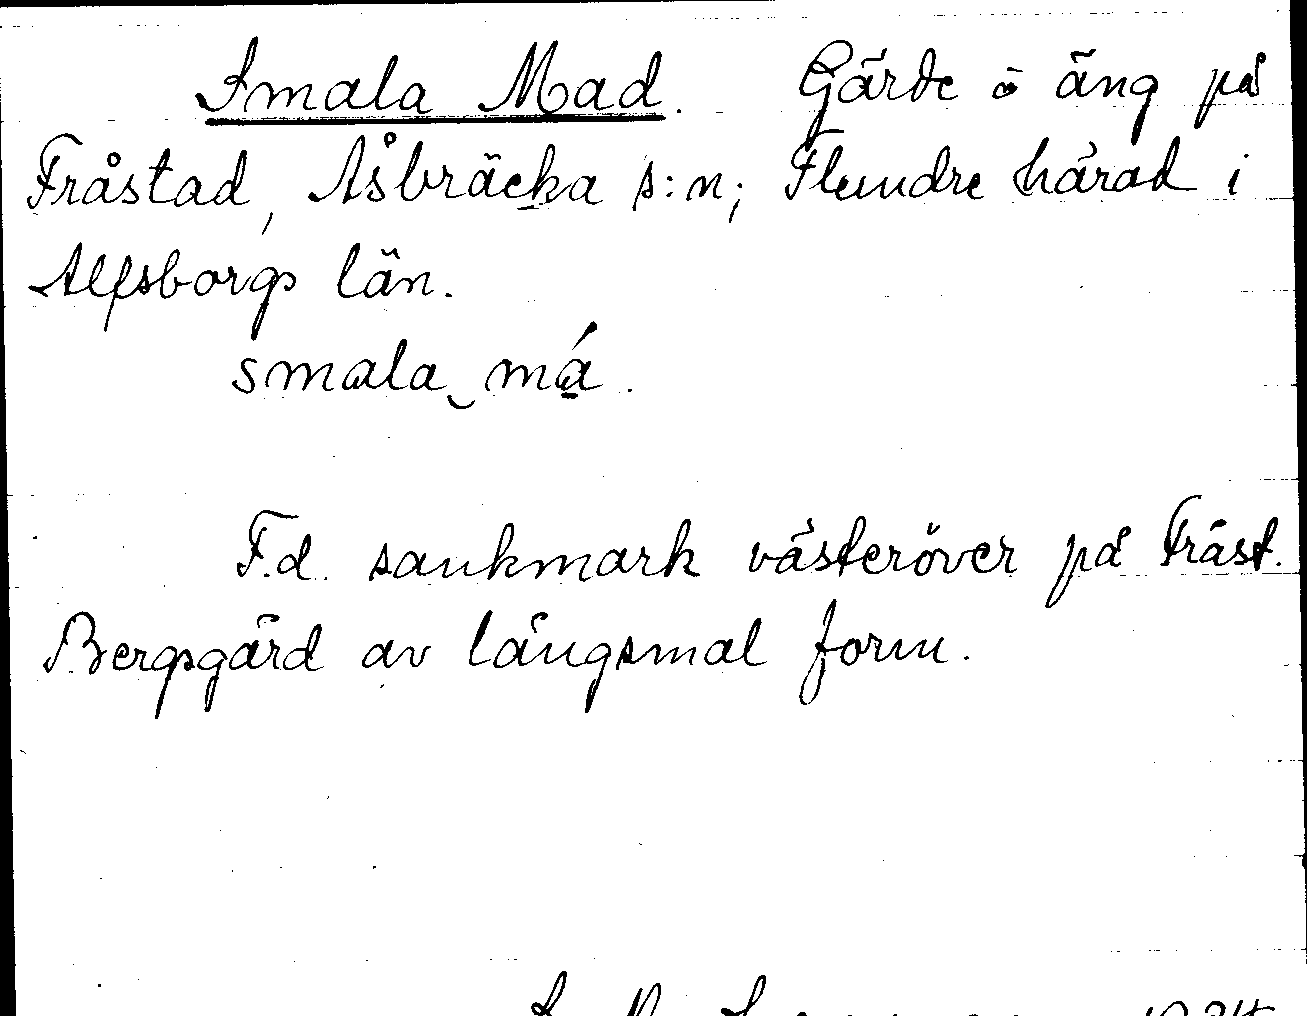 Smala Mad. Gärde o äng på
Fråstad, Åsbräcka s:n; Flundre härad i
Älfsborgs län.
smala‿má.
F.d. sankmark västeröver på Fråst.
Bergsgård av långsmal form.